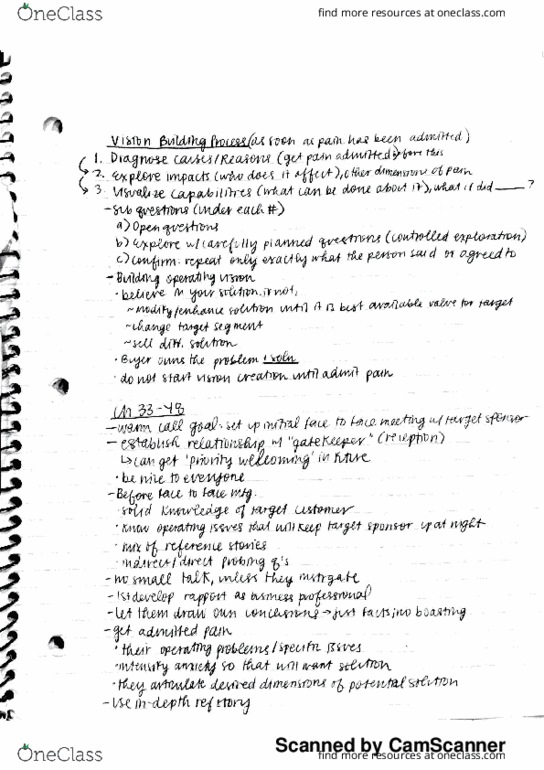 OneClass
find more resources at oneclass.com
Vision Building Process (as soon as pain has been admitted)
1. Diagnose causes/Reasons (get pain admitted before this
2. Explore impacts (who does it affect), other dimensions of pain
3. Visualize Capabilities (what can be done about it), what if did ____ ?
- Sub questions (under each #)
a) Open questions
b) Explore w/ carefully planned questions (controlled exploration)
c) Confirm: repeat only exactly what the person said or agreed to
- Building operating vision
· believe in your solution, if not,
~ modify/enhance solution until it is best available value for target
~ change target segment
~ sell diff. solution
· Buyer owns the problem & soln
· do not start vision creation until admit pain
Ch 33-48
- warm call goal: set up initial face to face meeting w/ target sponsor
- establish relationship w/ "gatekeeper" (reception)
↳ can get 'priority welcoming' in future
· be nice to everyone
- Before face to face mtg.
· solid knowledge of target customer
· know operating issues that will keep target sponsor up at night
· mix of reference stories
· indirect/direct probing q's
- no small talk, unless they instigate
- 1st develop rapport as business professional
- let them draw own conclusions → just facts, no boasting
- get admitted pain
· their operating problems/specific issues
· intensify anxiety so that will want solution
· they articulate desired dimensions of potential solution
- use in-depth ref story
Scanned by CamScanner
OneClass
find more resources at oneclass.com